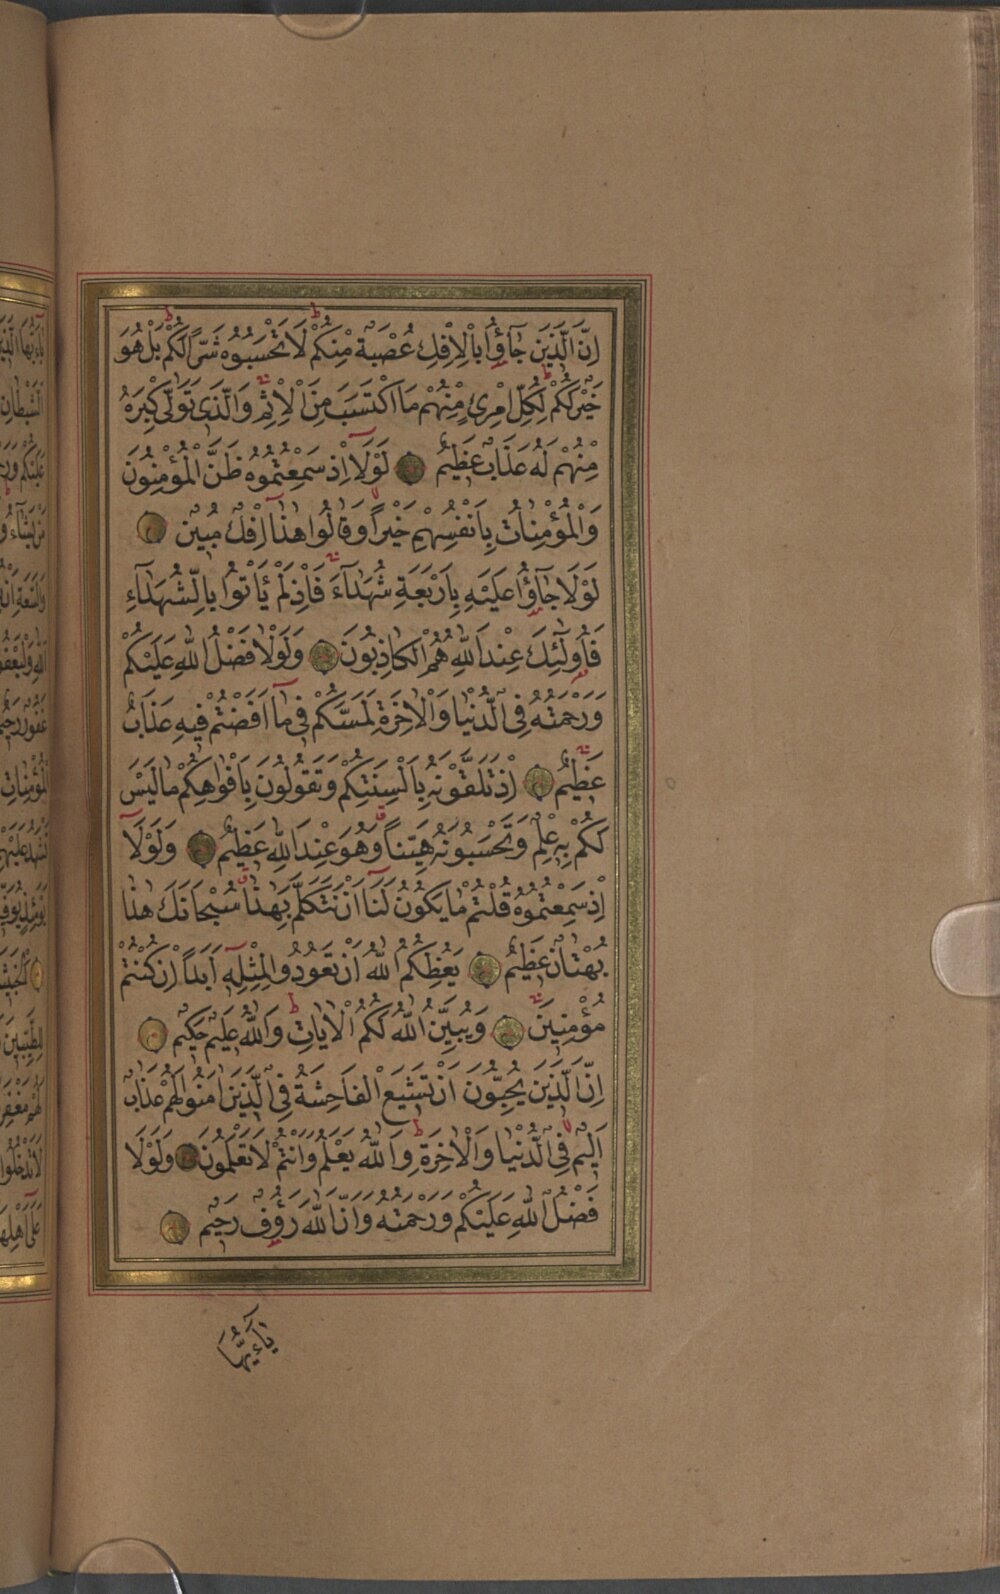 اِنَّ الَّذِينَ جَآؤُ۫ا بِالْاِفْكِ عُصْبَةٌ مِنْكُمْ لَا تَحْسَبُوهُ شَرًّا لَكُمْ بَلْ هُوَ
خَيْرٌ لَكُمْ لِكُلِّ امْرِئٍ مِنْهُمْ مَا اكْتَسَبَ مِنَ الْاِثْمِ وَالَّذِى تَوَلّٰى كِبْرَهُ
مِنْهُمْ لَهُ عَذَابٌ عَظِيمٌ لَوْلَآ اِذْ سَمِعْتُمُوهُ ظَنَّ الْمُؤْمِنُونَ
وَالْمُؤْمِنَاتُ بِاَنْفُسِهِمْ خَيْراً وَقَالُوا هٰذَآ اِفْكٌ مُبِينٌ
لَوْلَا جَآؤُ۫ا عَلَيْهِ بِاَرْبَعَةِ شُهَدَآءَ فَاِذْ لَمْ يَاْتُوا بِالشُّهَدَآءِ
فَاُولٰٓئِكَ عِنْدَ اللّٰهِ هُمُ الْكَاذِبُونَ وَلَوْلَا فَضْلُ اللّٰهِ عَلَيْكُمْ
وَرَحْمَتُهُ فِى الدُّنْيَا وَالْاٰخِرَةِ لَمَسَّكُمْ فِى مَآ اَفَضْتُمْ فِيهِ عَذَابٌ
عَظِيمٌ اِذْ تَلَقَّوْنَهُ بِاَلْسِنَتِكُمْ وَتَقُولُونَ بِاَفْوَاهِكُمْ مَا لَيْسَ
لَكُمْ بِهِ عِلْمٌ وَتَحْسَبُونَهُ هَيِّناً وَهُوَ عِنْدَ اللّٰهِ عَظِيمٌ وَلَوْلَآ
اِذْ سَمِعْتُمُوهُ قُلْتُمْ مَا يَكُونُ لَنَآ اَنْ نَتَكَلَّمَ بِهٰذَا سُبْحَانَكَ هٰذَا
بُهْتَانٌ عَظِيمٌ يَعِظُكُمُ اللّٰهُ اَنْ تَعُودُوا لِمِثْلِهِٓ اَبَداً اِنْ كُنْتُمْ
مُؤْمِنِينَ وَيُبَيِّنُ اللّٰهُ لَكُمُ الْاٰيَاتِ وَاللّٰهُ عَلِيمٌ حَكِيمٌ
اِنَّ الَّذِينَ يُحِبُّونَ اَنْ تَشِيعَ الْفَاحِشَةُ فِى الَّذِينَ اٰمَنُوا لَهُمْ عَذَابٌ
اَلِيمٌ فِى الدُّنْيَا وَالْاٰخِرَةِ وَاللّٰهُ يَعْلَمُ وَاَنْتُمْ لَا تَعْلَمُونَ وَلَوْلَا
فَضْلُ اللّٰهِ عَلَيْكُمْ وَرَحْمَتُهُ وَاَنَّ اللّٰهَ رَؤُفٌ رَحِيمٌ
يَآ اَيُّهَا